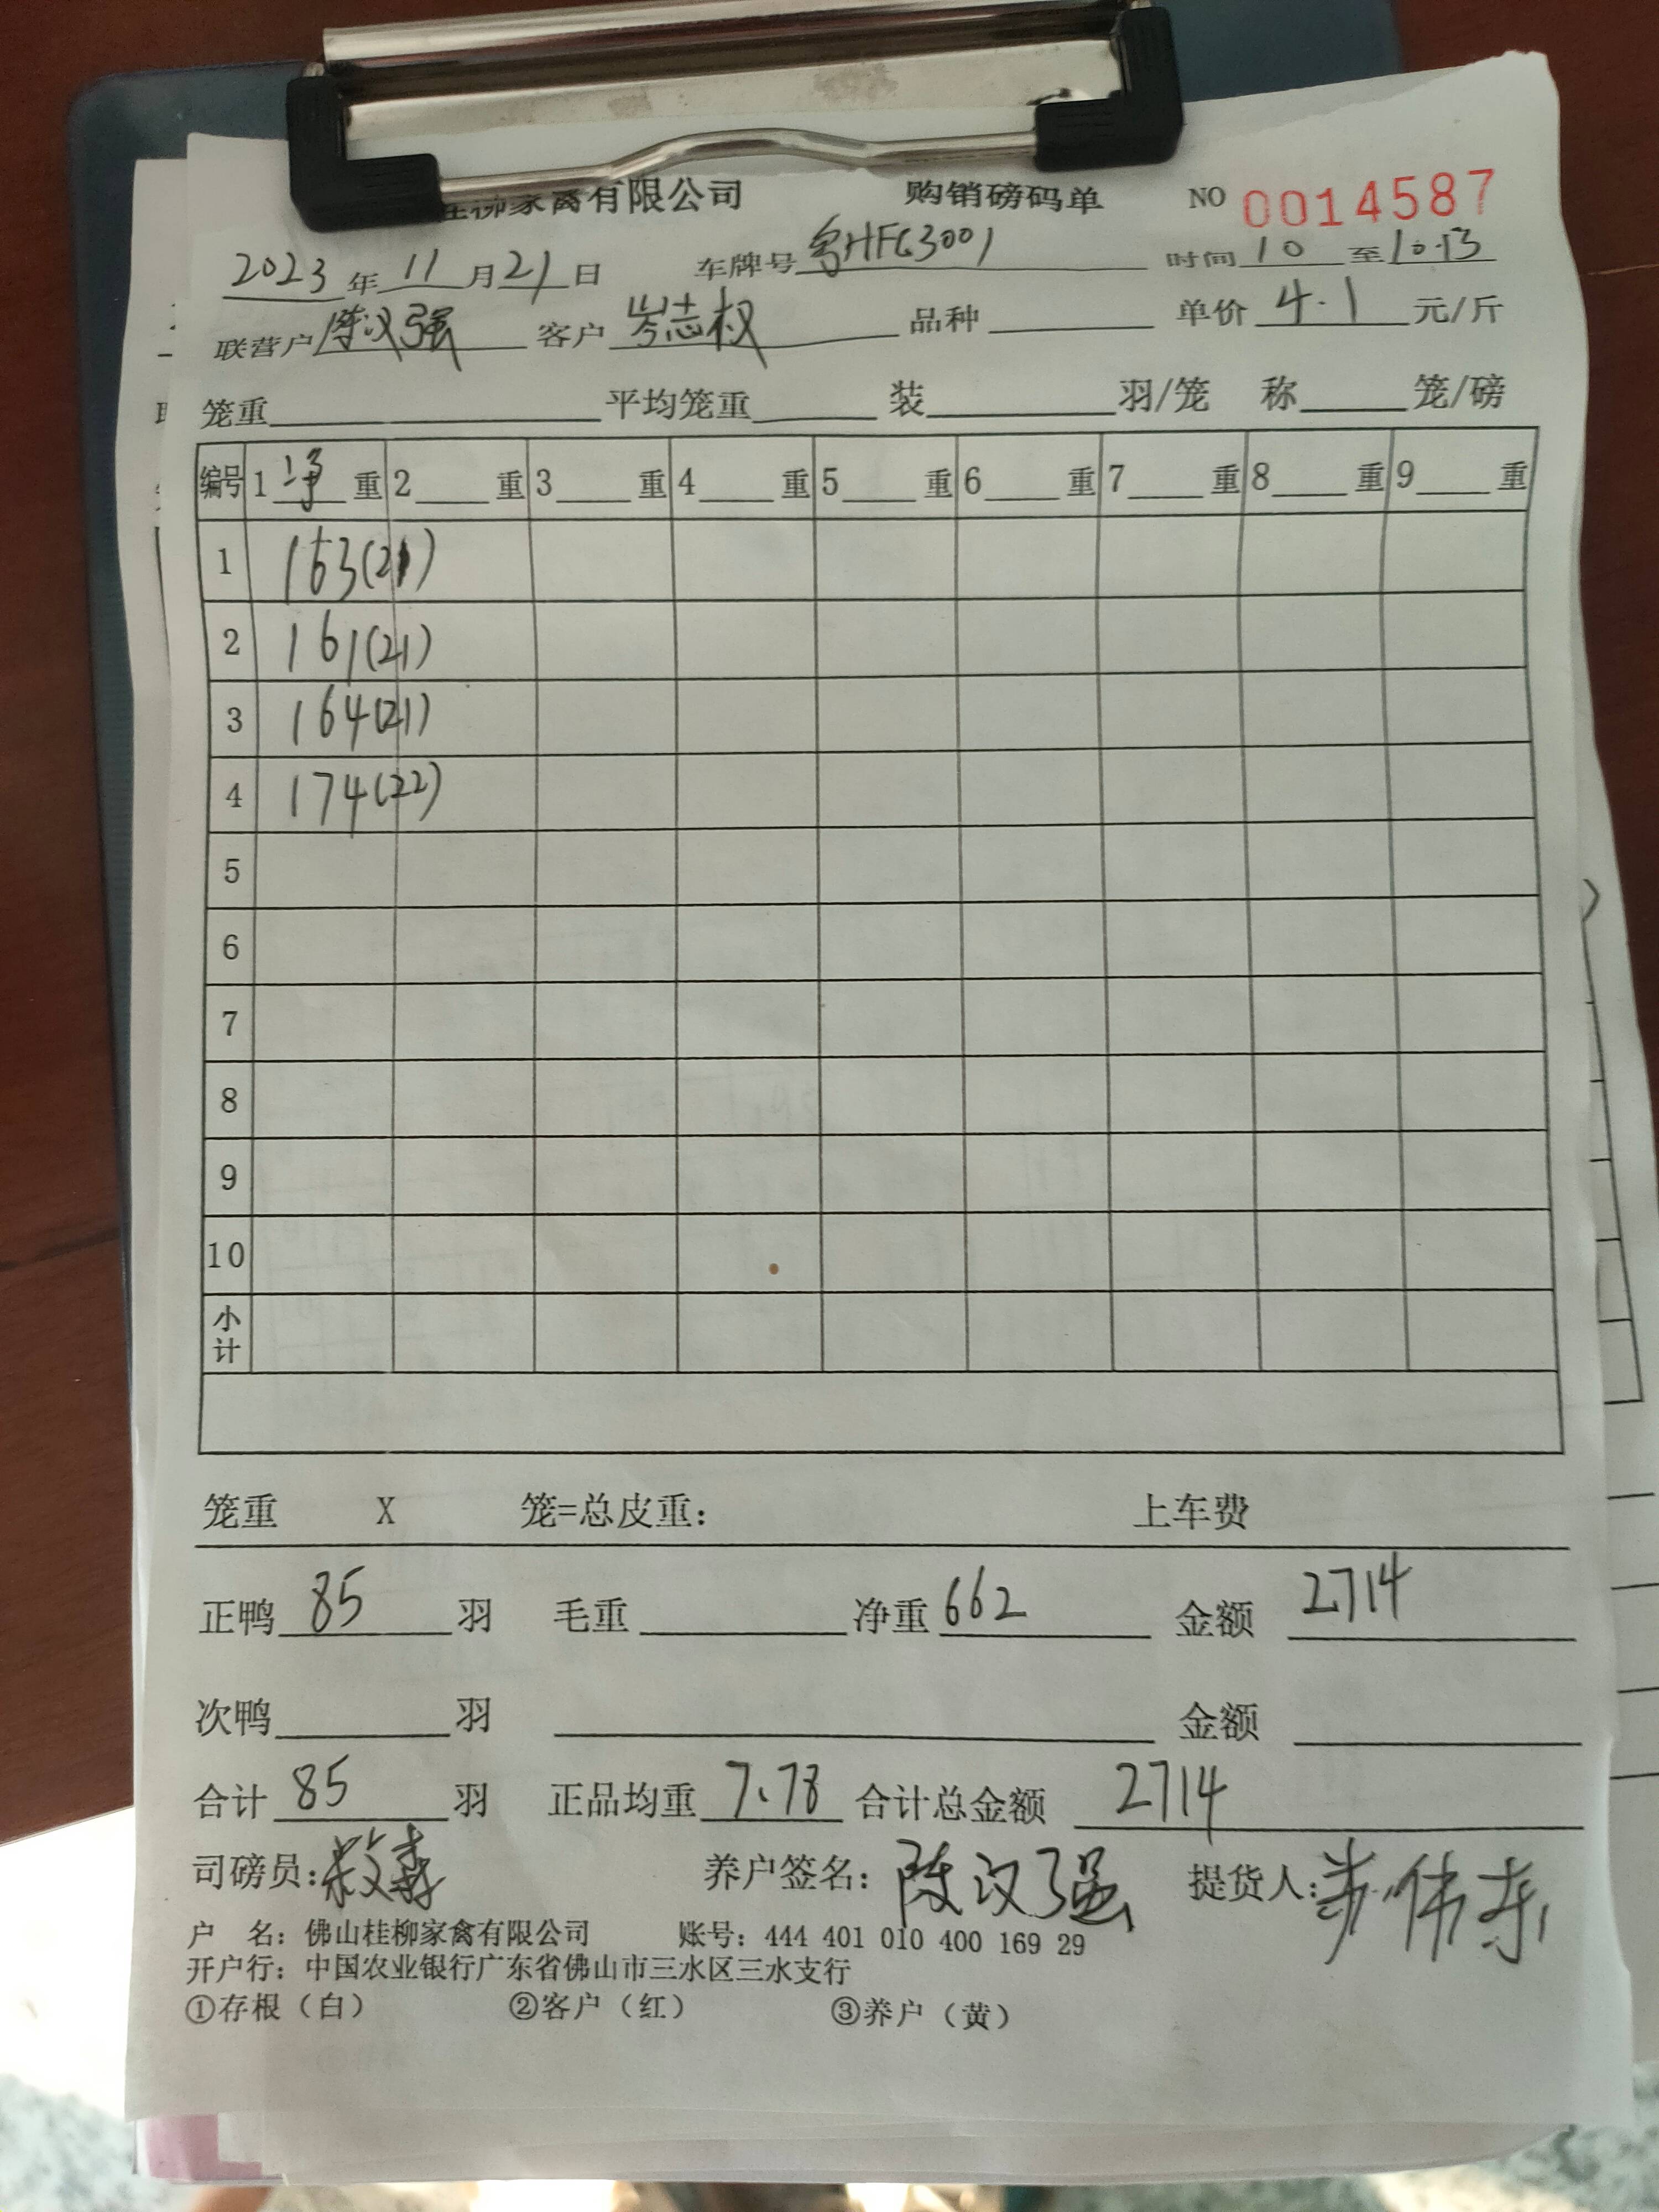 桂柳家禽有限公司 购销磅码单 NO 0014587
2023年11月21日 车牌号粤HFG3001 时间10至10:13
联营户陈汉强 客户岑志权 品种 单价4.1元/斤
笼重 平均笼重 装 羽/笼 称 笼/磅
编号 1净重 2重 3重 4重 5重 6重 7重 8重 9重
1 163(21)
2 161(21)
3 164(21)
4 174(22)
5
6
7
8
9
10
小计
笼重 X 笼=总皮重： 上车费
正鸭85羽 毛重 净重662 金额2714
次鸭 羽 金额
合计85羽 正品均重7.78 合计总金额2714
司磅员： 养户签名：陈汉强 提货人：
户 名：佛山桂柳家禽有限公司 账号：444 401 010 400 169 29
开户行：中国农业银行广东省佛山市三水区三水支行
①存根（白） ②客户（红） ③养户（黄）